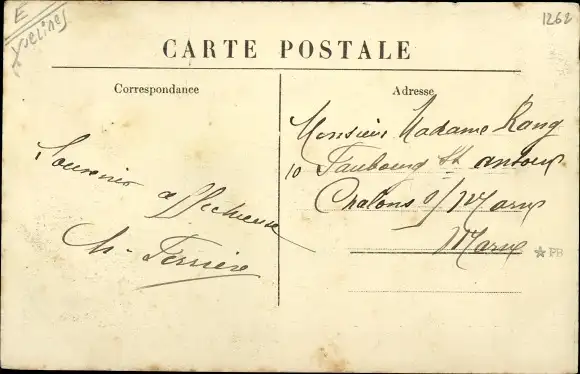 E
Yvelines
1262
CARTE POSTALE
Correspondance
Adresse
Souvenir affectueux
Ch. Ferrière
Monsieur Madame Rang
10 Faubourg St antoine
Chalons s/ Marne
Marne
PB